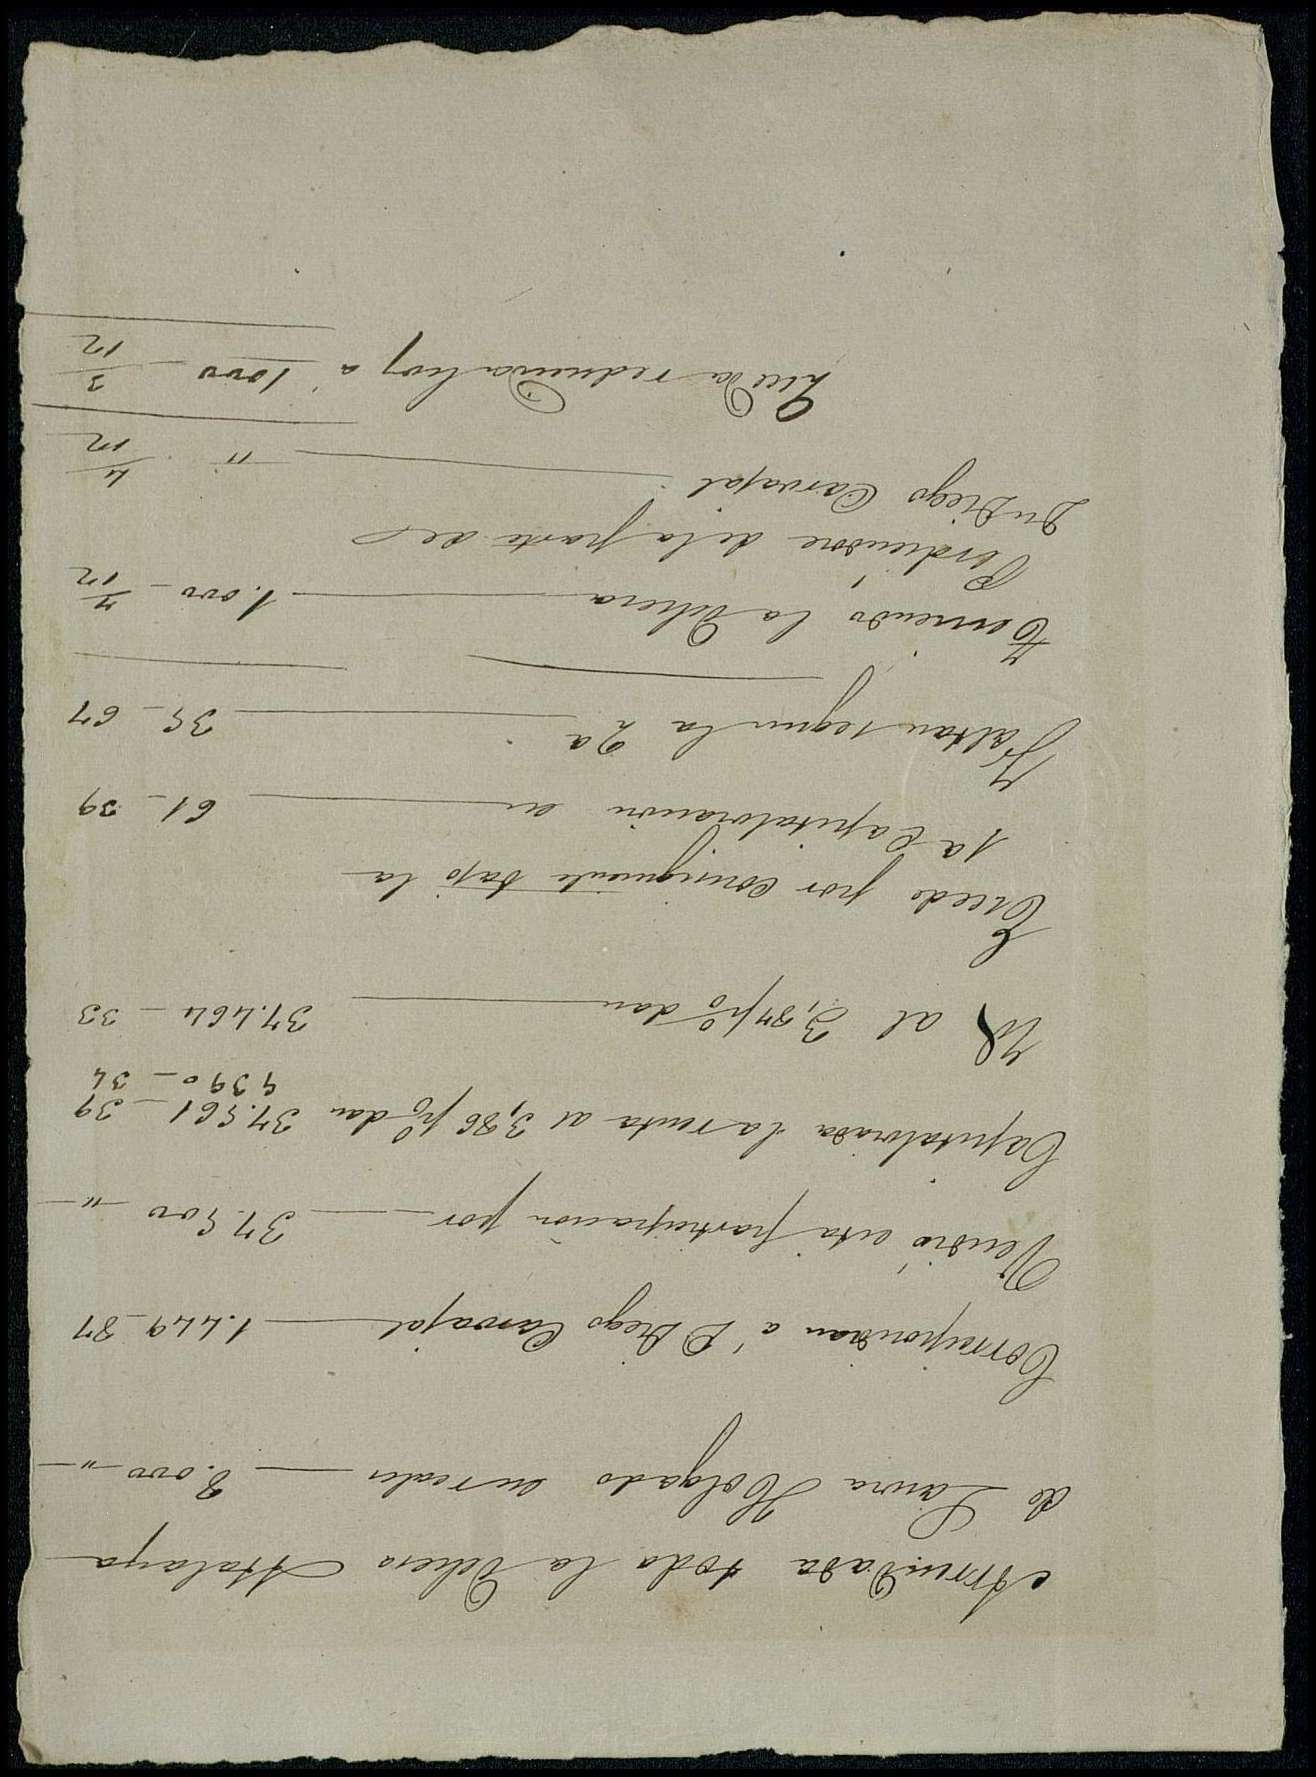 Arrendada toda la dehesa Atalaya
de Laura Holgado en reales — 8.000 — "
Correspondian a D Diego Carvajal — 1.449_87
Vendió esta participacion por — 37.500 "
Capitalizada la renta al 3,86 p% dan 37.561_39
9390_34
Id al 3,87 p% dan — 37.464_33
Excede por consiguiente bajo la
1a Capitalizacion en — 61_39
Faltan segun la 2a — 35_67
Teniendo la dehesa — 1.000_7/12
Perdiendose de la parte de
Dn Diego Carvajal — " 4/12
Queda reducida hoy a 1000_3/12